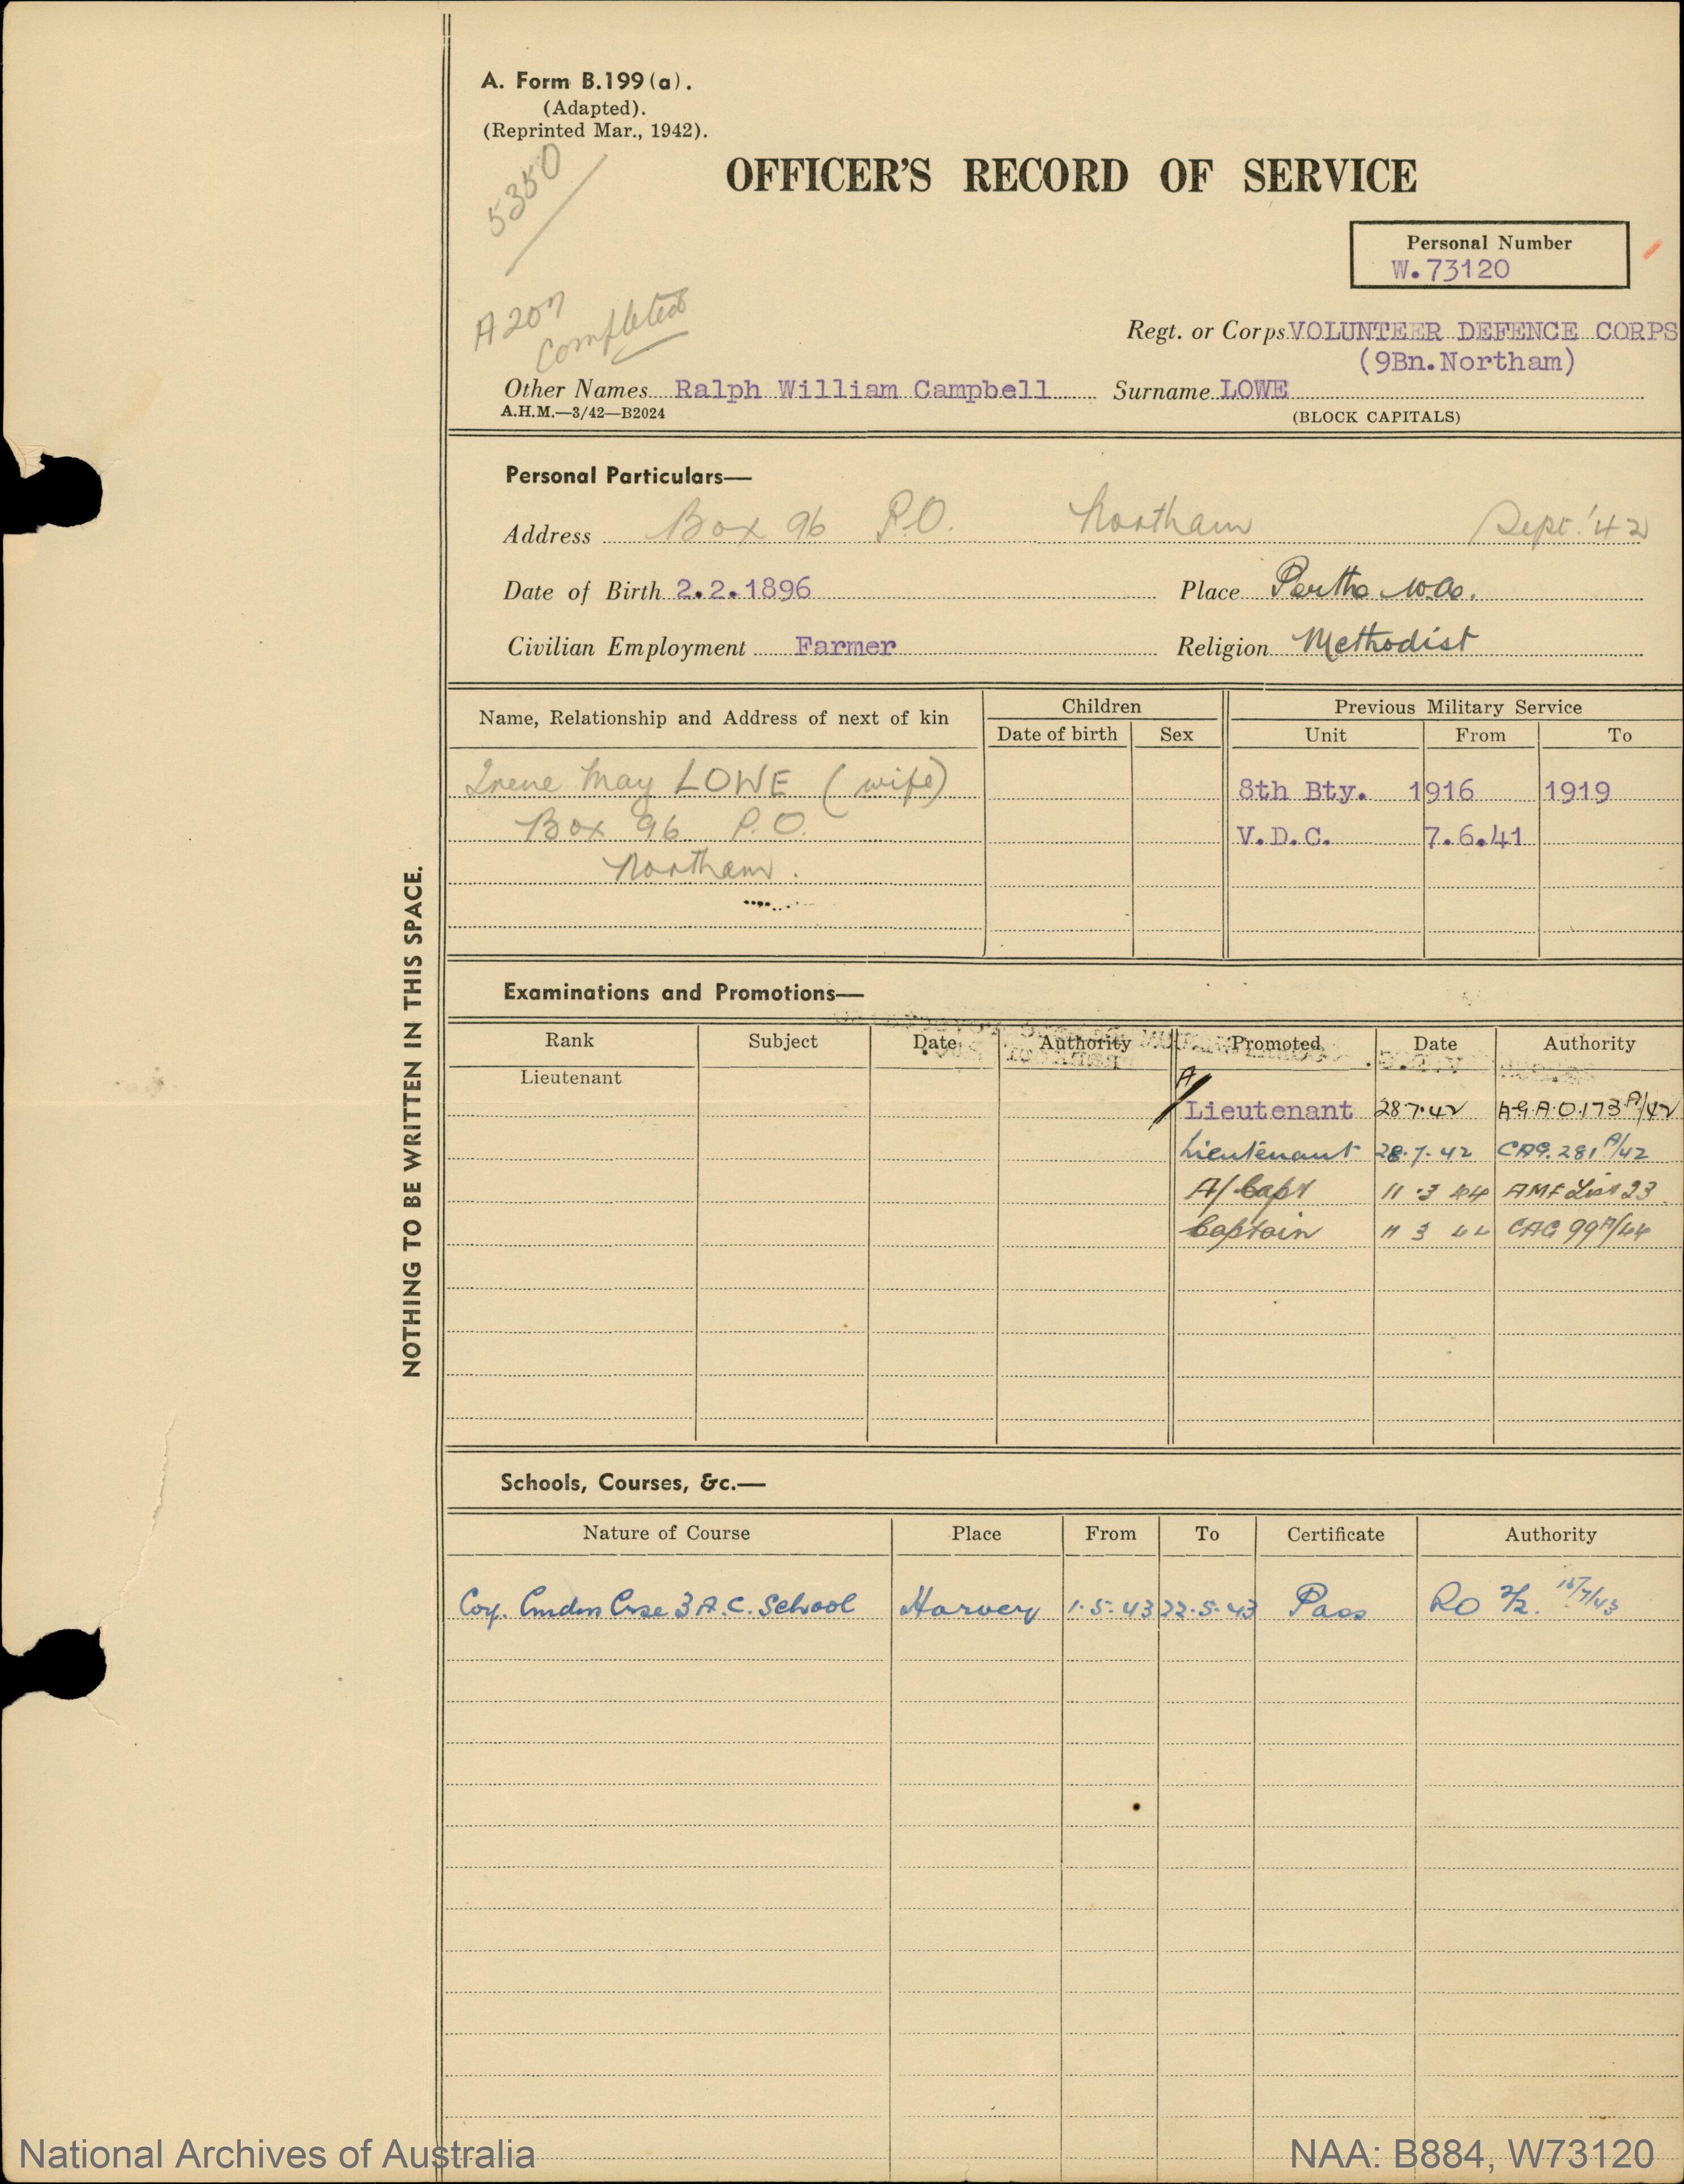 A. Form B.199(a).
(Adapted).
(Reprinted Mar., 1942).
5350
OFFICER'S RECORD OF SERVICE
Personal Number
W.73120
A 207
Completed
Regt. or Corps VOLUNTEER DEFENCE CORPS
(9Bn.Northam)
Other Names Ralph William Campbell Surname LOWE
A.H.M.—3/42—B2024 (BLOCK CAPITALS)
Personal Particulars—
Address Box 96 P.O. Northam Sept. '42
Date of Birth 2.2.1896 Place Perth W.A.
Civilian Employment Farmer Religion Methodist
Name, Relationship and Address of next of kin Children Previous Military Service
Date of birth Sex Unit From To
Irene May LOWE (wife) 8th Bty. 1916 1919
Box 96 P.O. V.D.C. 7.6.41
Northam.
NOTHING TO BE WRITTEN IN THIS SPACE.
Examinations and Promotions—
Rank Subject Date Authority Promoted Date Authority
Lieutenant
A/Lieutenant 28.7.42 A.G.A.O.173A/42
Lieutenant 28.7.42 CAG.281A/42
A/Capt 11.3.44 AMF List 23
Captain 11 3 44 CAG 99A/44
Schools, Courses, &c.—
Nature of Course Place From To Certificate Authority
Coy. Cmdrs Crse 3 A.C. School Harvey 1.5.43 22.5.43 Pass RO 15/7/43
National Archives of Australia NAA: B884, W73120